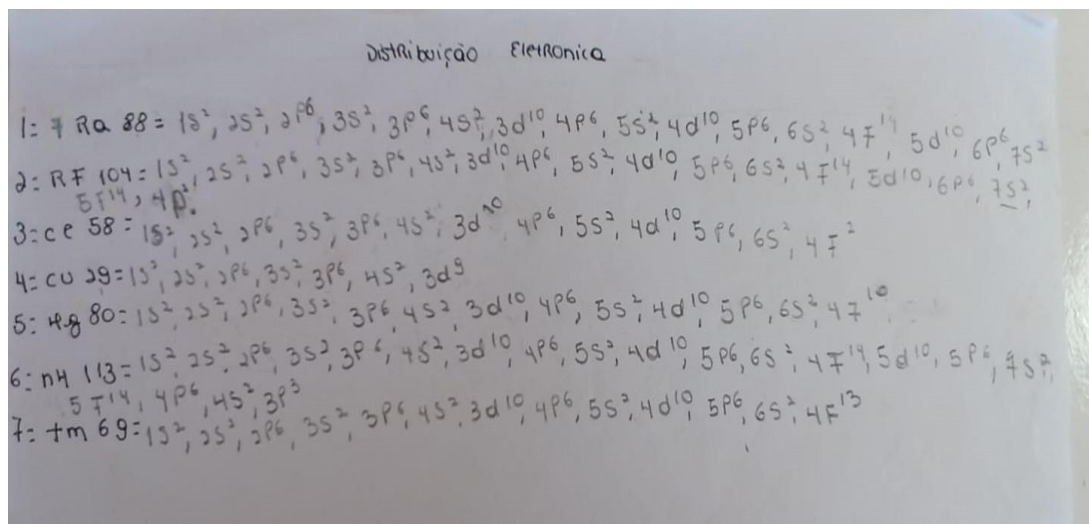 Distribuição Eletronica
1: 7 Ra 88 = 1s², 2s², 2p⁶, 3s², 3p⁶, 4s², 3d¹⁰, 4p⁶, 5s², 4d¹⁰, 5p⁶, 6s², 4F¹⁴, 5d¹⁰, 6p⁶, 7s²
2: RF 104 = 1s², 2s², 2p⁶, 3s², 3p⁶, 4s², 3d¹⁰, 4p⁶, 5s², 4d¹⁰, 5p⁶, 6s², 4F¹⁴, 5d¹⁰, 6p⁶, 7s²,
5F¹⁴, 4p².
3: ce 58 = 1s², 2s², 2p⁶, 3s², 3p⁶, 4s², 3d¹⁰, 4p⁶, 5s², 4d¹⁰, 5p⁶, 6s², 4F²
4= cu 29 = 1s², 2s², 2p⁶, 3s², 3p⁶, 4s², 3d⁹
5: Hg 80 = 1s², 2s², 2p⁶, 3s², 3p⁶, 4s², 3d¹⁰, 4p⁶, 5s², 4d¹⁰, 5p⁶, 6s², 4F¹⁰
6: nH 113 = 1s², 2s², 2p⁶, 3s², 3p⁶, 4s², 3d¹⁰, 4p⁶, 5s², 4d¹⁰, 5p⁶, 6s², 4F¹⁴, 5d¹⁰, 5p⁶, 7s²,
5F¹⁴, 4p⁶, 4s², 3p³
7= tm 69 = 1s², 2s², 2p⁶, 3s², 3p⁶, 4s², 3d¹⁰, 4p⁶, 5s², 4d¹⁰, 5p⁶, 6s², 4F¹³